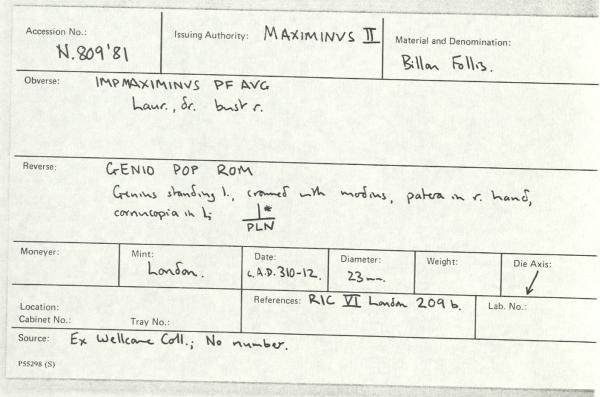 Accession No.: N.809'81
Issuing Authority: MAXIMINVS II
Material and Denomination: Billon Follis.
Obverse: IMPMAXIMINVS PF AVG
Laur., dr. bust r.
Reverse: GENIO POP ROM
Genius standing l., crowned with modius, patera in r. hand,
cornucopia in l; |*
PLN
Moneyer:
Mint: London.
Date: c. A.D. 310-12.
Diameter: 23mm.
Weight:
Die Axis: ↙
Location:
Cabinet No.: Tray No.:
References: RIC VI London 209 b.
Lab. No.:
Source: Ex Wellcome Coll.; No number.
P55298 (S)